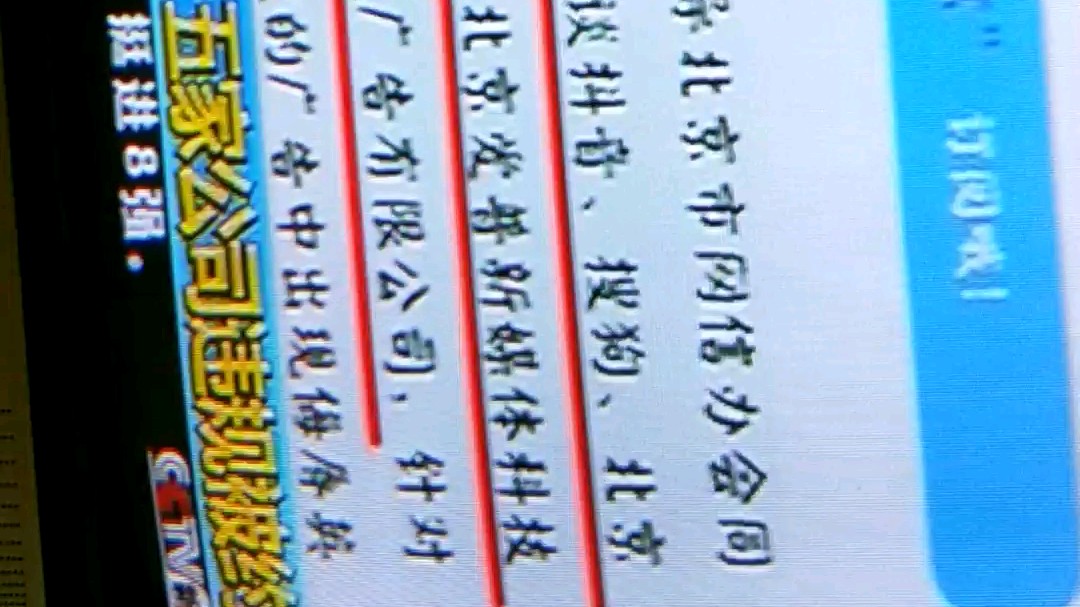 北京市网信办会同
谈抖音、搜狗、北京
北京爱普新媒体科技
广告有限公司，针对
的广告中出现侮辱英
五家公司违规被
挺进8强。
CCTV